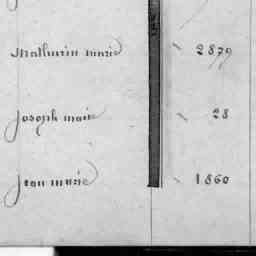 Mathurin marie 2879
Joseph marie 28
Jean marie 1860